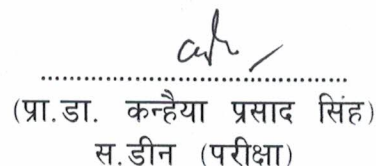 (प्रा.डा. कन्हैया प्रसाद सिंह)
स.डीन (परीक्षा)